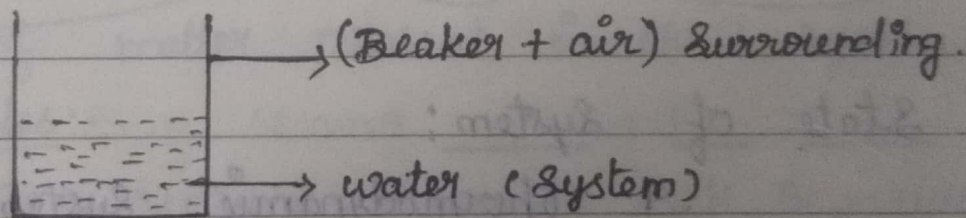 (Beaker + air) Surrounding.
water (System)